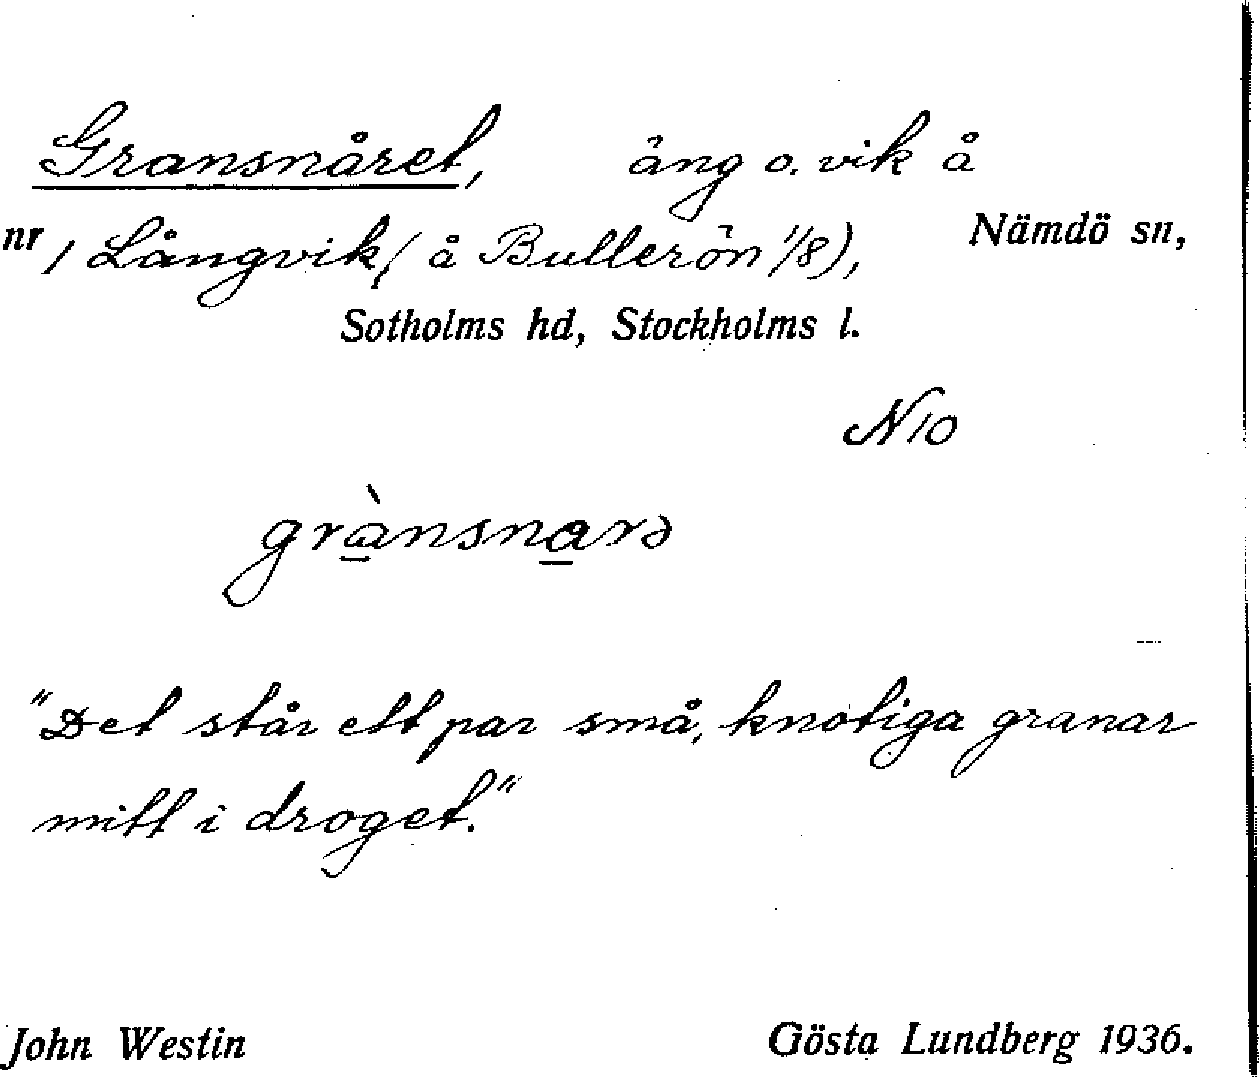 Gransnåret, äng o. vik å
nr / Långvik ( å Bullerön 1/8), Nämdö sn,
Sotholms hd, Stockholms l.
N 10
grà̲nsna̲rə
"Det står ett par små, knotiga granar
mitt i droget."
John Westin Gösta Lundberg 1936.